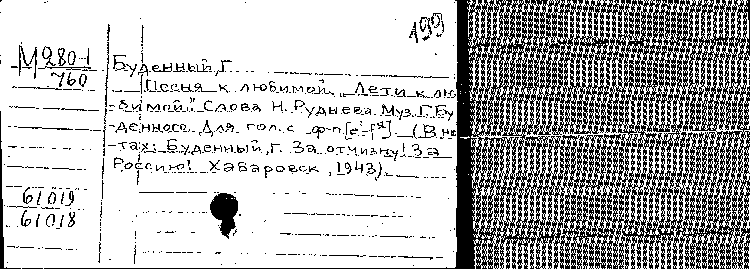 199
М 280-1
760
Буденный, Г.
Песня к любимой. „Лети к лю-
бимой." Слова Н. Руднева. Муз. Г. Бу-
денного. Для гол. с ф-п.
-тах: Буденный, Г. За отчизну! За
Россию! Хабаровск, 1943).
61019
61018